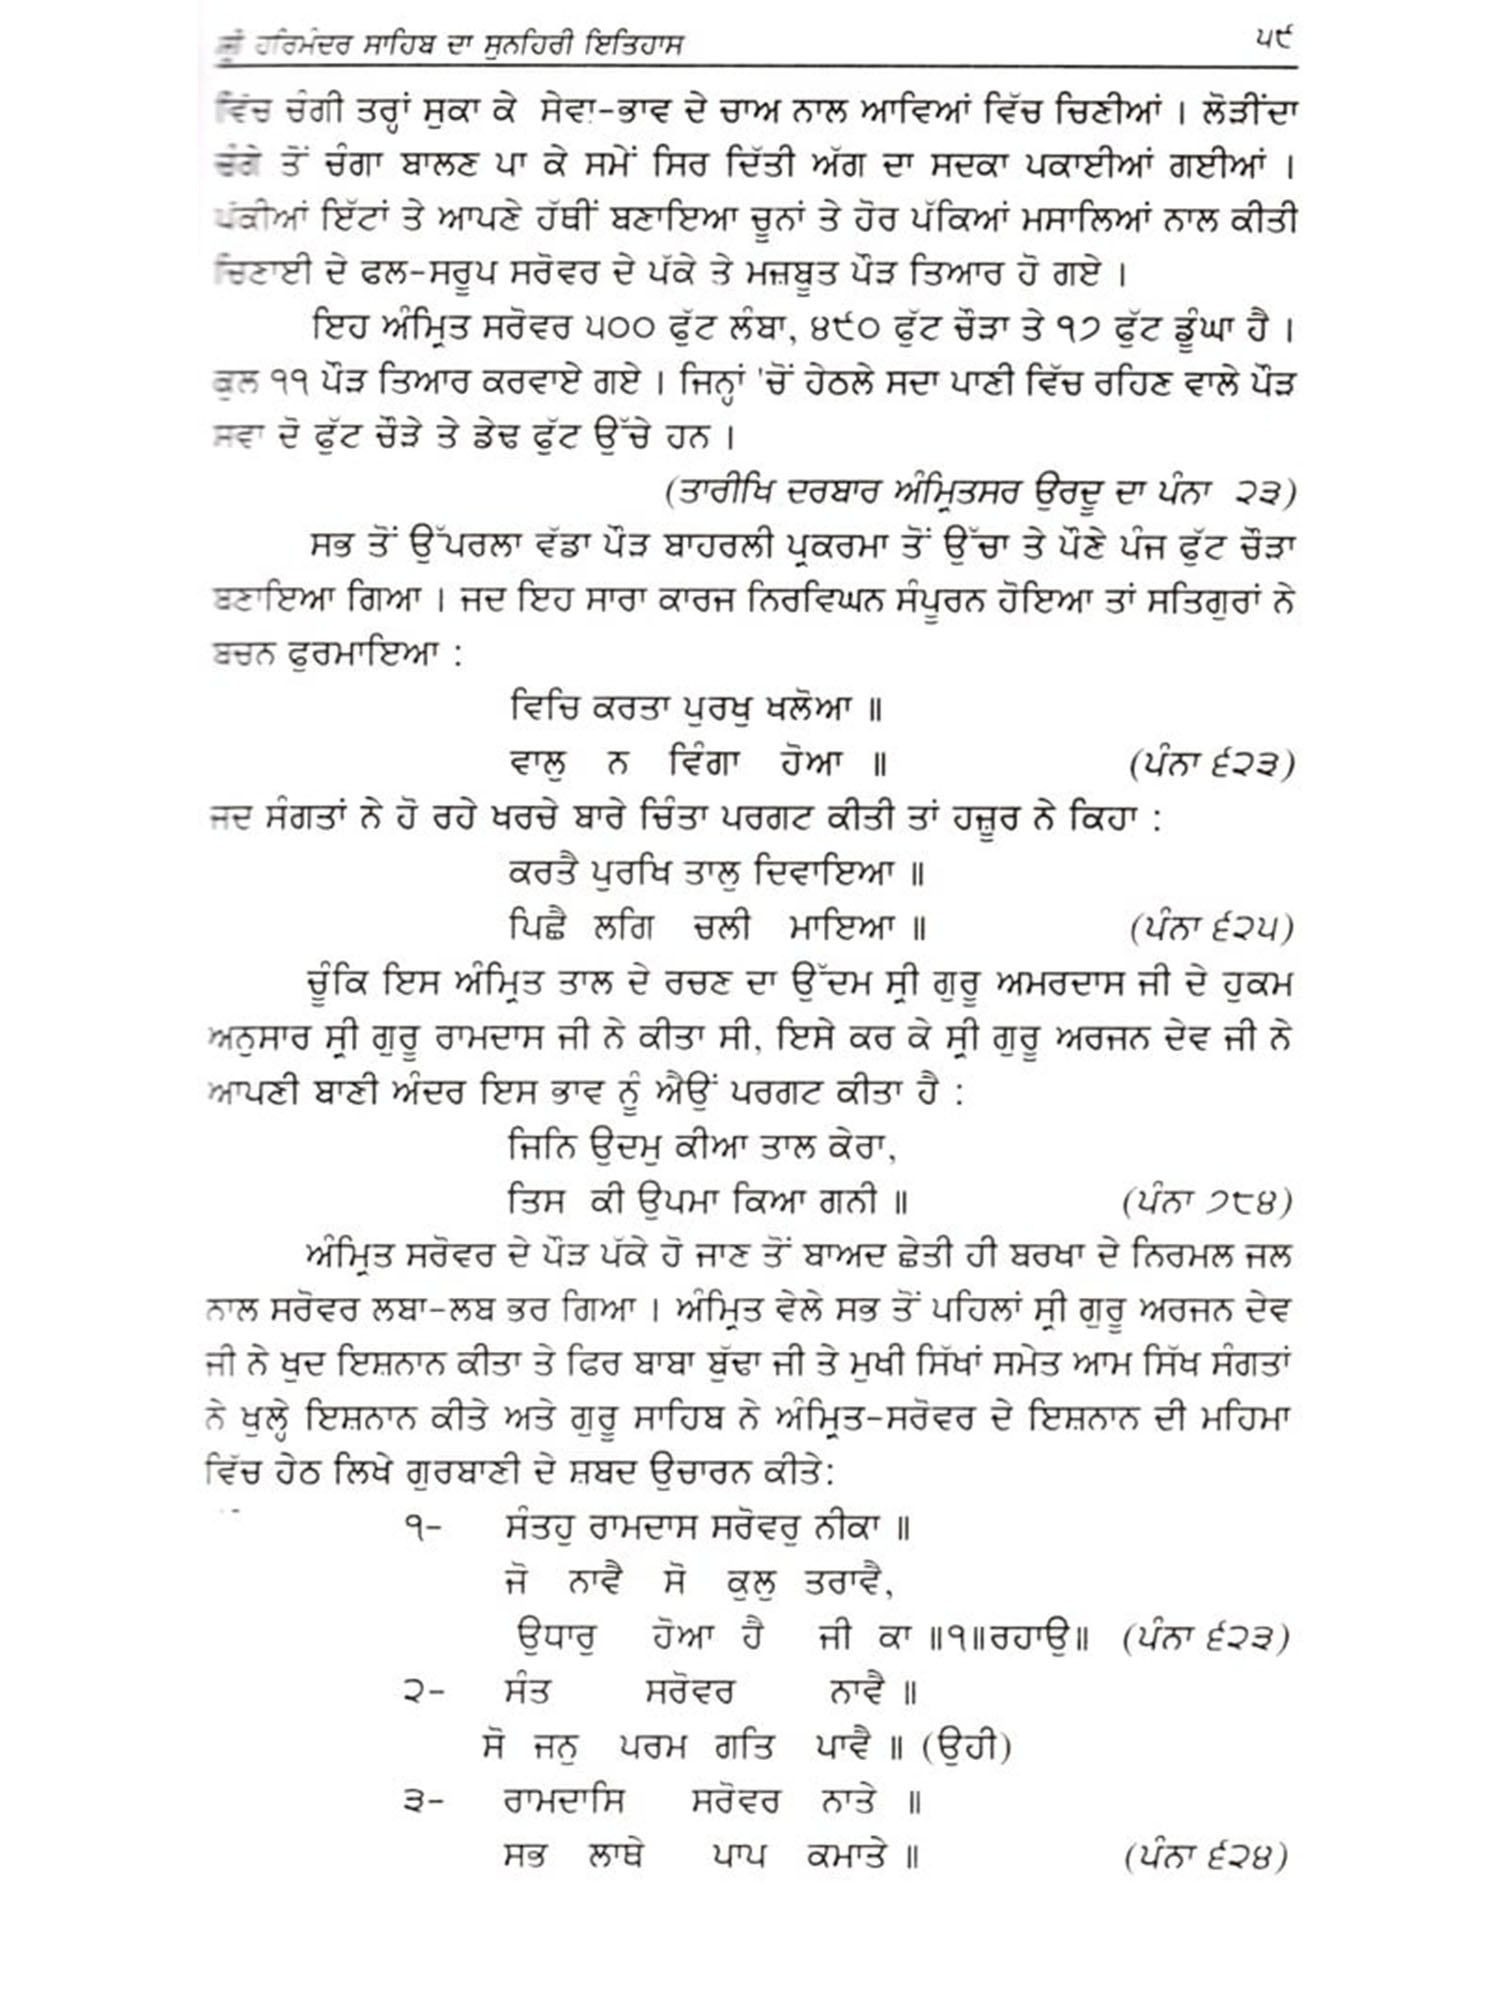 ਸ੍ਰੀ ਹਰਿਮੰਦਰ ਸਾਹਿਬ ਦਾ ਸੁਨਹਿਰੀ ਇਤਿਹਾਸ ੫੯
ਵਿੱਚ ਚੰਗੀ ਤਰ੍ਹਾਂ ਸੁਕਾ ਕੇ ਸੇਵਾ-ਭਾਵ ਦੇ ਚਾਅ ਨਾਲ ਆਵਿਆਂ ਵਿੱਚ ਚਿਣੀਆਂ । ਲੋੜੀਂਦਾ
ਚੰਗੇ ਤੋਂ ਚੰਗਾ ਬਾਲਣ ਪਾ ਕੇ ਸਮੇਂ ਸਿਰ ਦਿੱਤੀ ਅੱਗ ਦਾ ਸਦਕਾ ਪਕਾਈਆਂ ਗਈਆਂ ।
ਪੱਕੀਆਂ ਇੱਟਾਂ ਤੇ ਆਪਣੇ ਹੱਥੀਂ ਬਣਾਇਆ ਚੂਨਾਂ ਤੇ ਹੋਰ ਪੱਕਿਆਂ ਮਸਾਲਿਆਂ ਨਾਲ ਕੀਤੀ
ਚਿਣਾਈ ਦੇ ਫਲ-ਸਰੂਪ ਸਰੋਵਰ ਦੇ ਪੱਕੇ ਤੇ ਮਜ਼ਬੂਤ ਪੌੜ ਤਿਆਰ ਹੋ ਗਏ ।
ਇਹ ਅੰਮ੍ਰਿਤ ਸਰੋਵਰ ੫੦੦ ਫੁੱਟ ਲੰਬਾ, ੪੯੦ ਫੁੱਟ ਚੌੜਾ ਤੇ ੧੭ ਫੁੱਟ ਡੂੰਘਾ ਹੈ ।
ਕੁਲ ੧੧ ਪੌੜ ਤਿਆਰ ਕਰਵਾਏ ਗਏ । ਜਿਨ੍ਹਾਂ 'ਚੋਂ ਹੇਠਲੇ ਸਦਾ ਪਾਣੀ ਵਿੱਚ ਰਹਿਣ ਵਾਲੇ ਪੌੜ
ਸਵਾ ਦੋ ਫੁੱਟ ਚੌੜੇ ਤੇ ਡੇਢ ਫੁੱਟ ਉੱਚੇ ਹਨ ।
(ਤਾਰੀਖਿ ਦਰਬਾਰ ਅੰਮ੍ਰਿਤਸਰ ਉਰਦੂ ਦਾ ਪੰਨਾ ੨੩)
ਸਭ ਤੋਂ ਉੱਪਰਲਾ ਵੱਡਾ ਪੌੜ ਬਾਹਰਲੀ ਪ੍ਰਕਰਮਾ ਤੋਂ ਉੱਚਾ ਤੇ ਪੌਣੇ ਪੰਜ ਫੁੱਟ ਚੌੜਾ
ਬਣਾਇਆ ਗਿਆ । ਜਦ ਇਹ ਸਾਰਾ ਕਾਰਜ ਨਿਰਵਿਘਨ ਸੰਪੂਰਨ ਹੋਇਆ ਤਾਂ ਸਤਿਗੁਰਾਂ ਨੇ
ਬਚਨ ਫੁਰਮਾਇਆ :
ਵਿਚਿ ਕਰਤਾ ਪੁਰਖੁ ਖਲੋਆ ॥
ਵਾਲੁ ਨ ਵਿੰਗਾ ਹੋਆ ॥ (ਪੰਨਾ ੬੨੩)
ਜਦ ਸੰਗਤਾਂ ਨੇ ਹੋ ਰਹੇ ਖਰਚੇ ਬਾਰੇ ਚਿੰਤਾ ਪਰਗਟ ਕੀਤੀ ਤਾਂ ਹਜ਼ੂਰ ਨੇ ਕਿਹਾ :
ਕਰਤੈ ਪੁਰਖਿ ਤਾਲੁ ਦਿਵਾਇਆ ॥
ਪਿਛੈ ਲਗਿ ਚਲੀ ਮਾਇਆ ॥ (ਪੰਨਾ ੬੨੫)
ਚੂੰਕਿ ਇਸ ਅੰਮ੍ਰਿਤ ਤਾਲ ਦੇ ਰਚਣ ਦਾ ਉੱਦਮ ਸ੍ਰੀ ਗੁਰੂ ਅਮਰਦਾਸ ਜੀ ਦੇ ਹੁਕਮ
ਅਨੁਸਾਰ ਸ੍ਰੀ ਗੁਰੂ ਰਾਮਦਾਸ ਜੀ ਨੇ ਕੀਤਾ ਸੀ, ਇਸੇ ਕਰ ਕੇ ਸ੍ਰੀ ਗੁਰੂ ਅਰਜਨ ਦੇਵ ਜੀ ਨੇ
ਆਪਣੀ ਬਾਣੀ ਅੰਦਰ ਇਸ ਭਾਵ ਨੂੰ ਐਉਂ ਪਰਗਟ ਕੀਤਾ ਹੈ :
ਜਿਨਿ ਉਦਮੁ ਕੀਆ ਤਾਲ ਕੇਰਾ,
ਤਿਸ ਕੀ ਉਪਮਾ ਕਿਆ ਗਨੀ ॥ (ਪੰਨਾ ੭੮੪)
ਅੰਮ੍ਰਿਤ ਸਰੋਵਰ ਦੇ ਪੌੜ ਪੱਕੇ ਹੋ ਜਾਣ ਤੋਂ ਬਾਅਦ ਛੇਤੀ ਹੀ ਬਰਖਾ ਦੇ ਨਿਰਮਲ ਜਲ
ਨਾਲ ਸਰੋਵਰ ਲਬਾ-ਲਬ ਭਰ ਗਿਆ । ਅੰਮ੍ਰਿਤ ਵੇਲੇ ਸਭ ਤੋਂ ਪਹਿਲਾਂ ਸ੍ਰੀ ਗੁਰੂ ਅਰਜਨ ਦੇਵ
ਜੀ ਨੇ ਖੁਦ ਇਸ਼ਨਾਨ ਕੀਤਾ ਤੇ ਫਿਰ ਬਾਬਾ ਬੁੱਢਾ ਜੀ ਤੇ ਮੁਖੀ ਸਿੱਖਾਂ ਸਮੇਤ ਆਮ ਸਿੱਖ ਸੰਗਤਾਂ
ਨੇ ਖੁਲ੍ਹੇ ਇਸ਼ਨਾਨ ਕੀਤੇ ਅਤੇ ਗੁਰੂ ਸਾਹਿਬ ਨੇ ਅੰਮ੍ਰਿਤ-ਸਰੋਵਰ ਦੇ ਇਸ਼ਨਾਨ ਦੀ ਮਹਿਮਾ
ਵਿੱਚ ਹੇਠ ਲਿਖੇ ਗੁਰਬਾਣੀ ਦੇ ਸ਼ਬਦ ਉਚਾਰਨ ਕੀਤੇ:
੧- ਸੰਤਹੁ ਰਾਮਦਾਸ ਸਰੋਵਰੁ ਨੀਕਾ ॥
ਜੋ ਨਾਵੈ ਸੋ ਕੁਲੁ ਤਰਾਵੈ,
ਉਧਾਰੁ ਹੋਆ ਹੈ ਜੀ ਕਾ ॥੧॥ਰਹਾਉ॥ (ਪੰਨਾ ੬੨੩)
੨- ਸੰਤ ਸਰੋਵਰ ਨਾਵੈ ॥
ਸੋ ਜਨੁ ਪਰਮ ਗਤਿ ਪਾਵੈ ॥ (ਉਹੀ)
੩- ਰਾਮਦਾਸਿ ਸਰੋਵਰ ਨਾਤੇ ॥
ਸਭ ਲਾਥੇ ਪਾਪ ਕਮਾਤੇ ॥ (ਪੰਨਾ ੬੨੪)